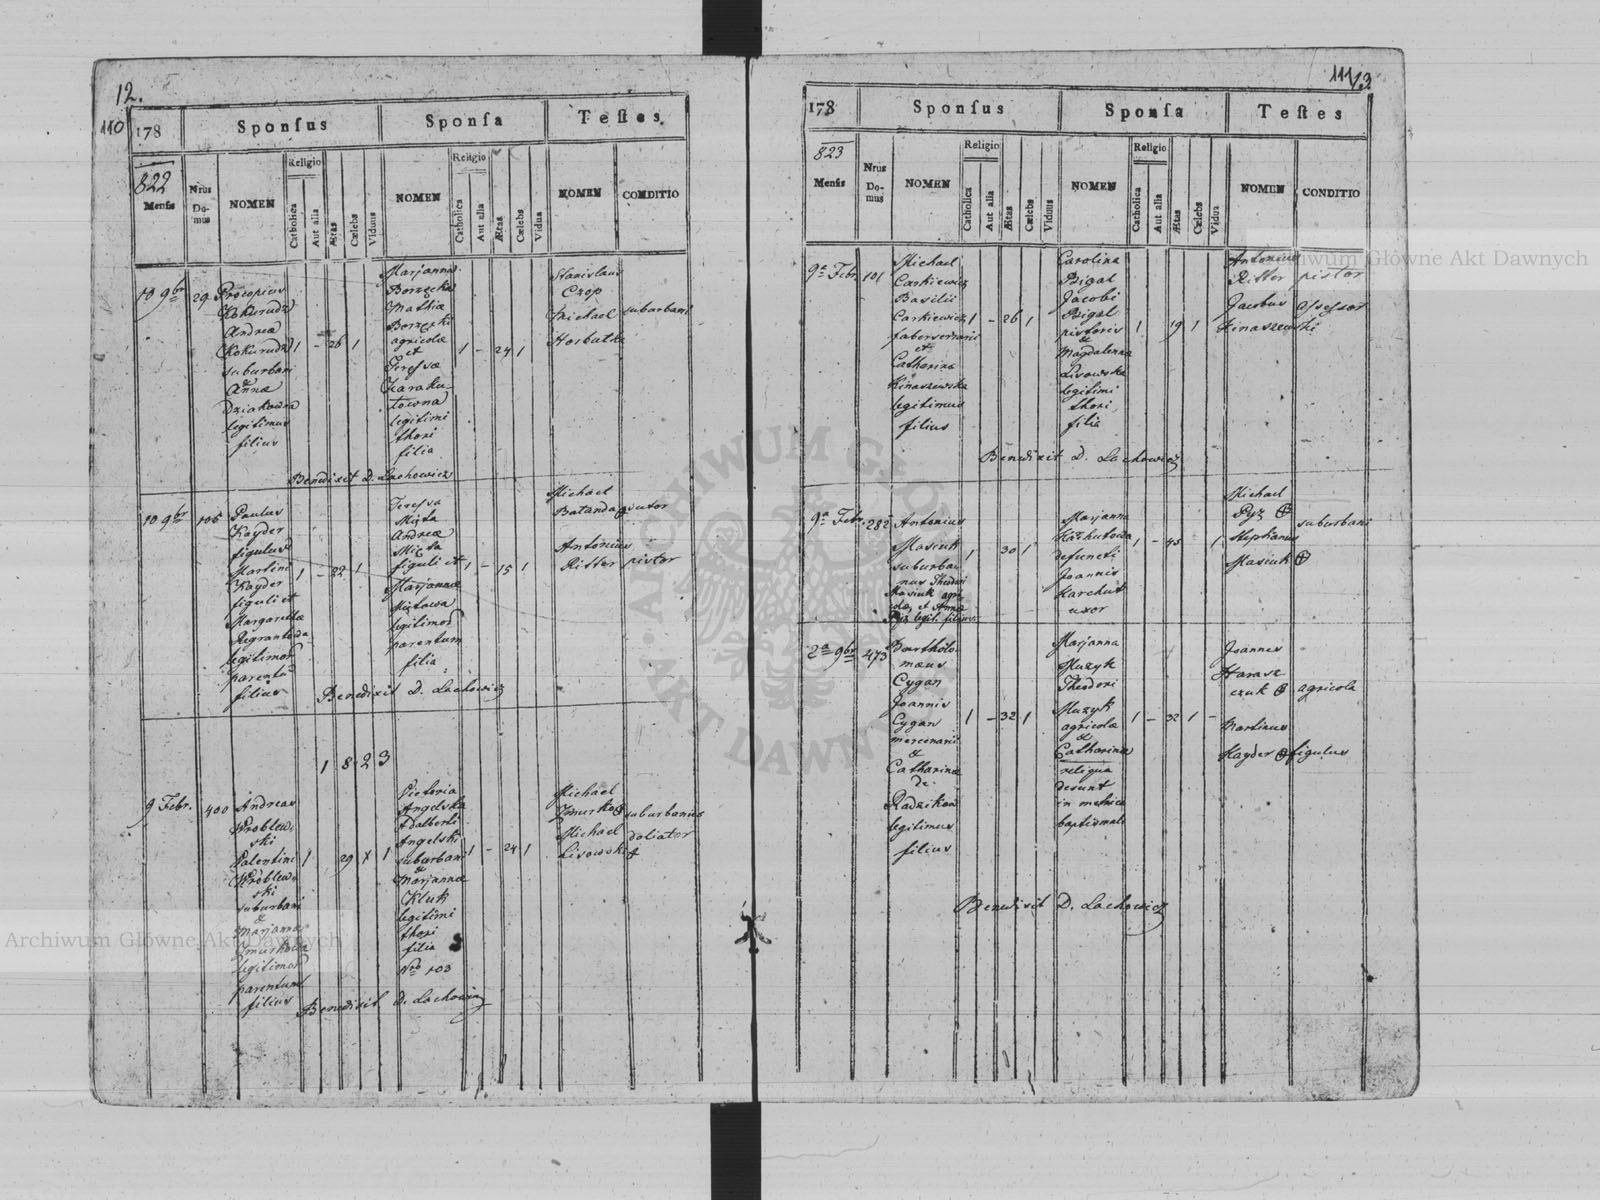 12.
110
178
Sponsus
Sponsa
Testes
822
Mensis
Nrus
Do-
mus
NOMEN
Religio
Catholica
Aut alia
Ætas
Cælebs
Viduus
NOMEN
Religio
Catholica
Aut alia
Ætas
Cælebs
Vidua
NOMEN
CONDITIO
10 9br
29
Procopius
Kokurudz
Andreæ
Kokurudz
suburbani
&
Annæ
Dziakowna
legitimus
filius
1 - 26 1
Marjanna
Borzęcka
Mathiæ
Borzęcki
agricolæ
et
Teressæ
legitimi
thori
filia
1 - 24 1
Stanislaus
Czop
Michael
suburbani
Benedixit D. Lachowicz
10 9br
105
Paulus
Kayder
figulus
Martini
Kayder
figuli et
Margarethæ
legitimor
parentu
filius
1 - 22 1
Teressa
Mięta
Andreæ
Mięta
figuli et
Marjannæ
Miętowa
legitimor
parentum
filia
1 - 15 1
Michael
Batanda sutor
Antonius
Ritter pistor
Benedixit D. Lachowicz
1 8 2 3
9 Febr.
400
Andreas
Wroblew-
ski
Valentini
Wroblew-
ski
suburbani
&
Marjannæ
Zmurkowa
legitimor
parentum
filius
1 29 x 1
Victoria
Angelska
Adalberti
Angelski
suburbani
&
Marjannæ
Kluk
legitimi
thori
filia
Nro 103
1 - 24 1
Michael
Zmurko suburbanus
Michael doliator
Lisowski
Benedixit D. Lachowicz
111
13
178
Sponsus
Sponsa
Testes
823
Mensis
Nrus
Do-
mus
NOMEN
Religio
Catholica
Aut alia
Ætas
Cælebs
Viduus
NOMEN
Religio
Catholica
Aut alia
Ætas
Cælebs
Vidua
NOMEN
CONDITIO
9a Febr.
101
Michael
Carkiewicz
Basilii
Carkiewicz
et
Catharinæ
Kinaszewska
legitimus
filius
1 - 26 1
Carolina
Bigal
Jacobi
Bigal
pistoris
&
Magdalenæ
Lisowska
legitimi
thori
filia
1 19 1
Antonius
Ritter pistor
Jacobus assessor
Kinaszewski
Benedixit D. Lachowicz
9a Febr.
282
Antonius
Masiuk
suburba-
nus Theodori
Masiuk agri-
colæ, et Annæ
Pyz legit. filius
1 30 1
Marjanna
defuncti
Joannis
Karchut
uxor
1 - 45 1
Michael
Pyz
suburbani
Stephanus
Masiuk
2a 9br
473
Bartholo-
mæus
Cygan
Joannis
Cygan
mercenarii
&
Catharinæ
de
Radzikow
legitimus
filius
1 - 32 1
Marjanna
Muzyk
Theodori
Muzyk
agricolæ
&
Catharinæ
reliqua
desunt
in metrica
baptismali
1 - 32 1 -
Joannes
Harasz
czuk agricola
Martinus
Kayder figulus
Benedixit D. Lachowicz
ARCHIWUM GŁÓWNE AKT DAWNYCH
Archiwum Główne Akt Dawnych
Archiwum Główne Akt Dawnych